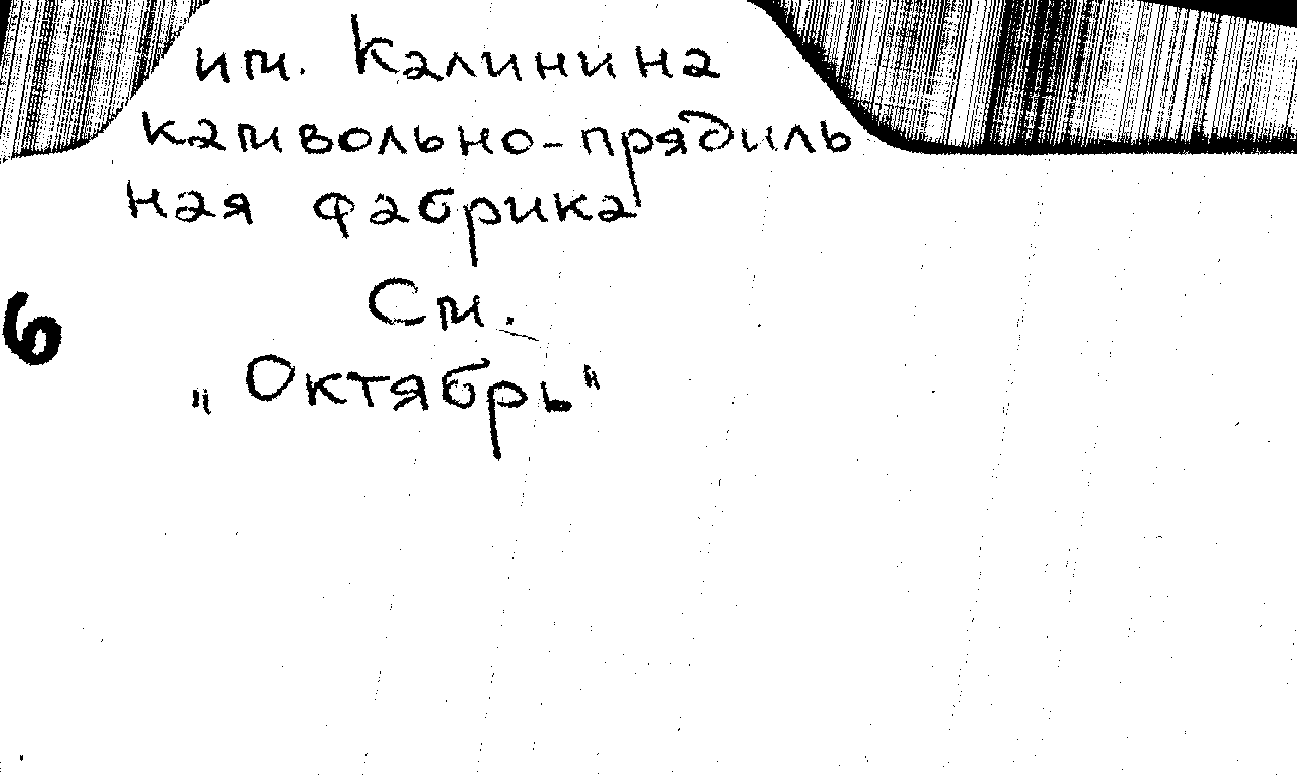 им. Калинина
камвольно-прядиль
ная фабрика
См.
6
„Октябрь"